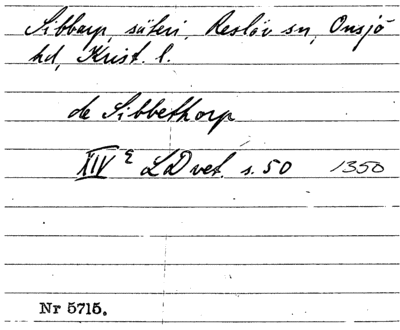 Sibbarp, säteri, Reslöv sn, Onsjö
hd, Krist. l.
de Sibbethorp
XIV ξ LD vet. s. 50 1350
Nr 5715.